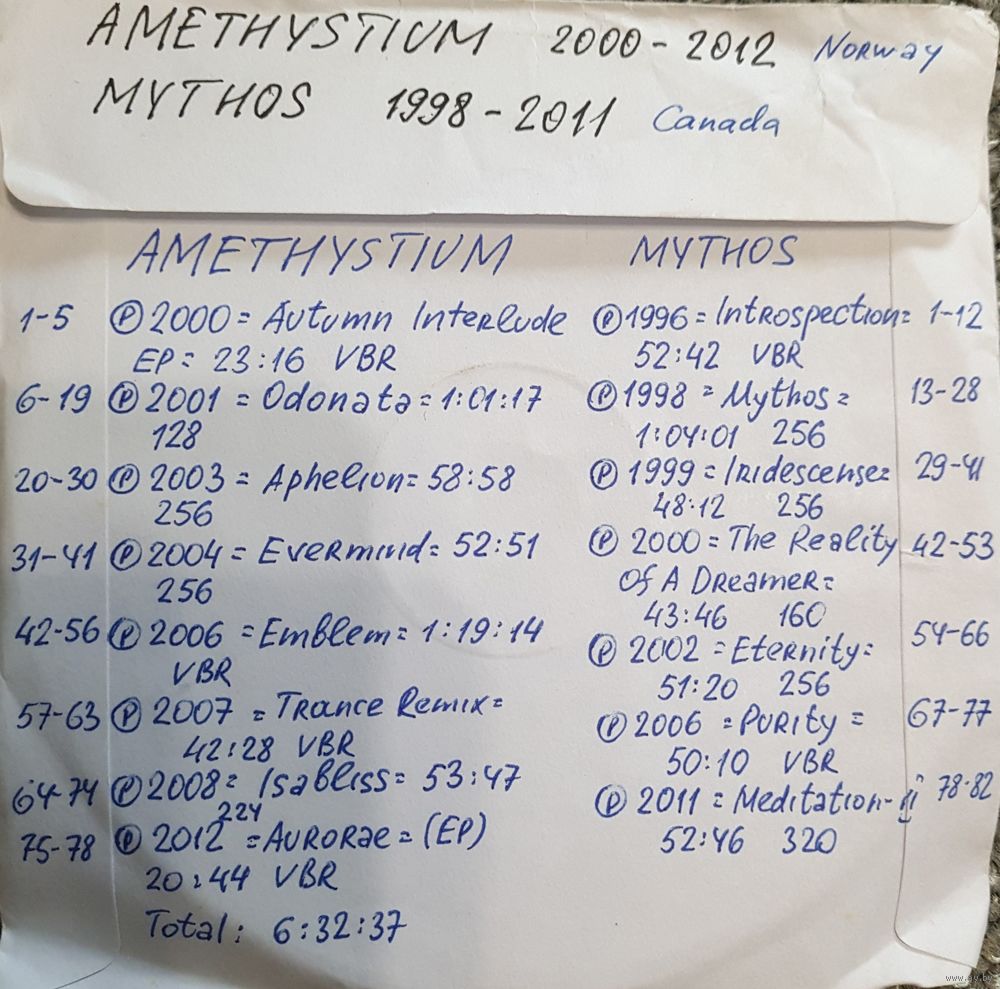 AMETHYSTIUM 2000-2012 Norway
MYTHOS 1998-2011 Canada
AMETHYSTIUM
1-5 Ⓟ 2000 = Autumn Interlude
EP = 23:16 VBR
6-19 Ⓟ 2001 = Odonata = 1:01:17
128
20-30 Ⓟ 2003 = Aphelion = 58:58
256
31-41 Ⓟ 2004 = Evermind = 52:51
256
42-56 Ⓟ 2006 = Emblem = 1:19:14
VBR
57-63 Ⓟ 2007 = Trance Remix =
42:28 VBR
64-74 Ⓟ 2008 = Isabliss = 53:47
224
75-78 Ⓟ 2012 = Aurorae = (EP)
20:44 VBR
Total: 6:32:37
MYTHOS
Ⓟ 1996 = Introspection = 1-12
52:42 VBR
Ⓟ 1998 = Mythos = 13-28
1:04:01 256
Ⓟ 1999 = Iridescense = 29-41
48:12 256
Ⓟ 2000 = The Reality 42-53
Of A Dreamer =
43:46 160
Ⓟ 2002 = Eternity = 54-66
51:20 256
Ⓟ 2006 = Purity = 67-77
50:10 VBR
Ⓟ 2011 = Meditation- 78-82
52:46 320
www.ay.by